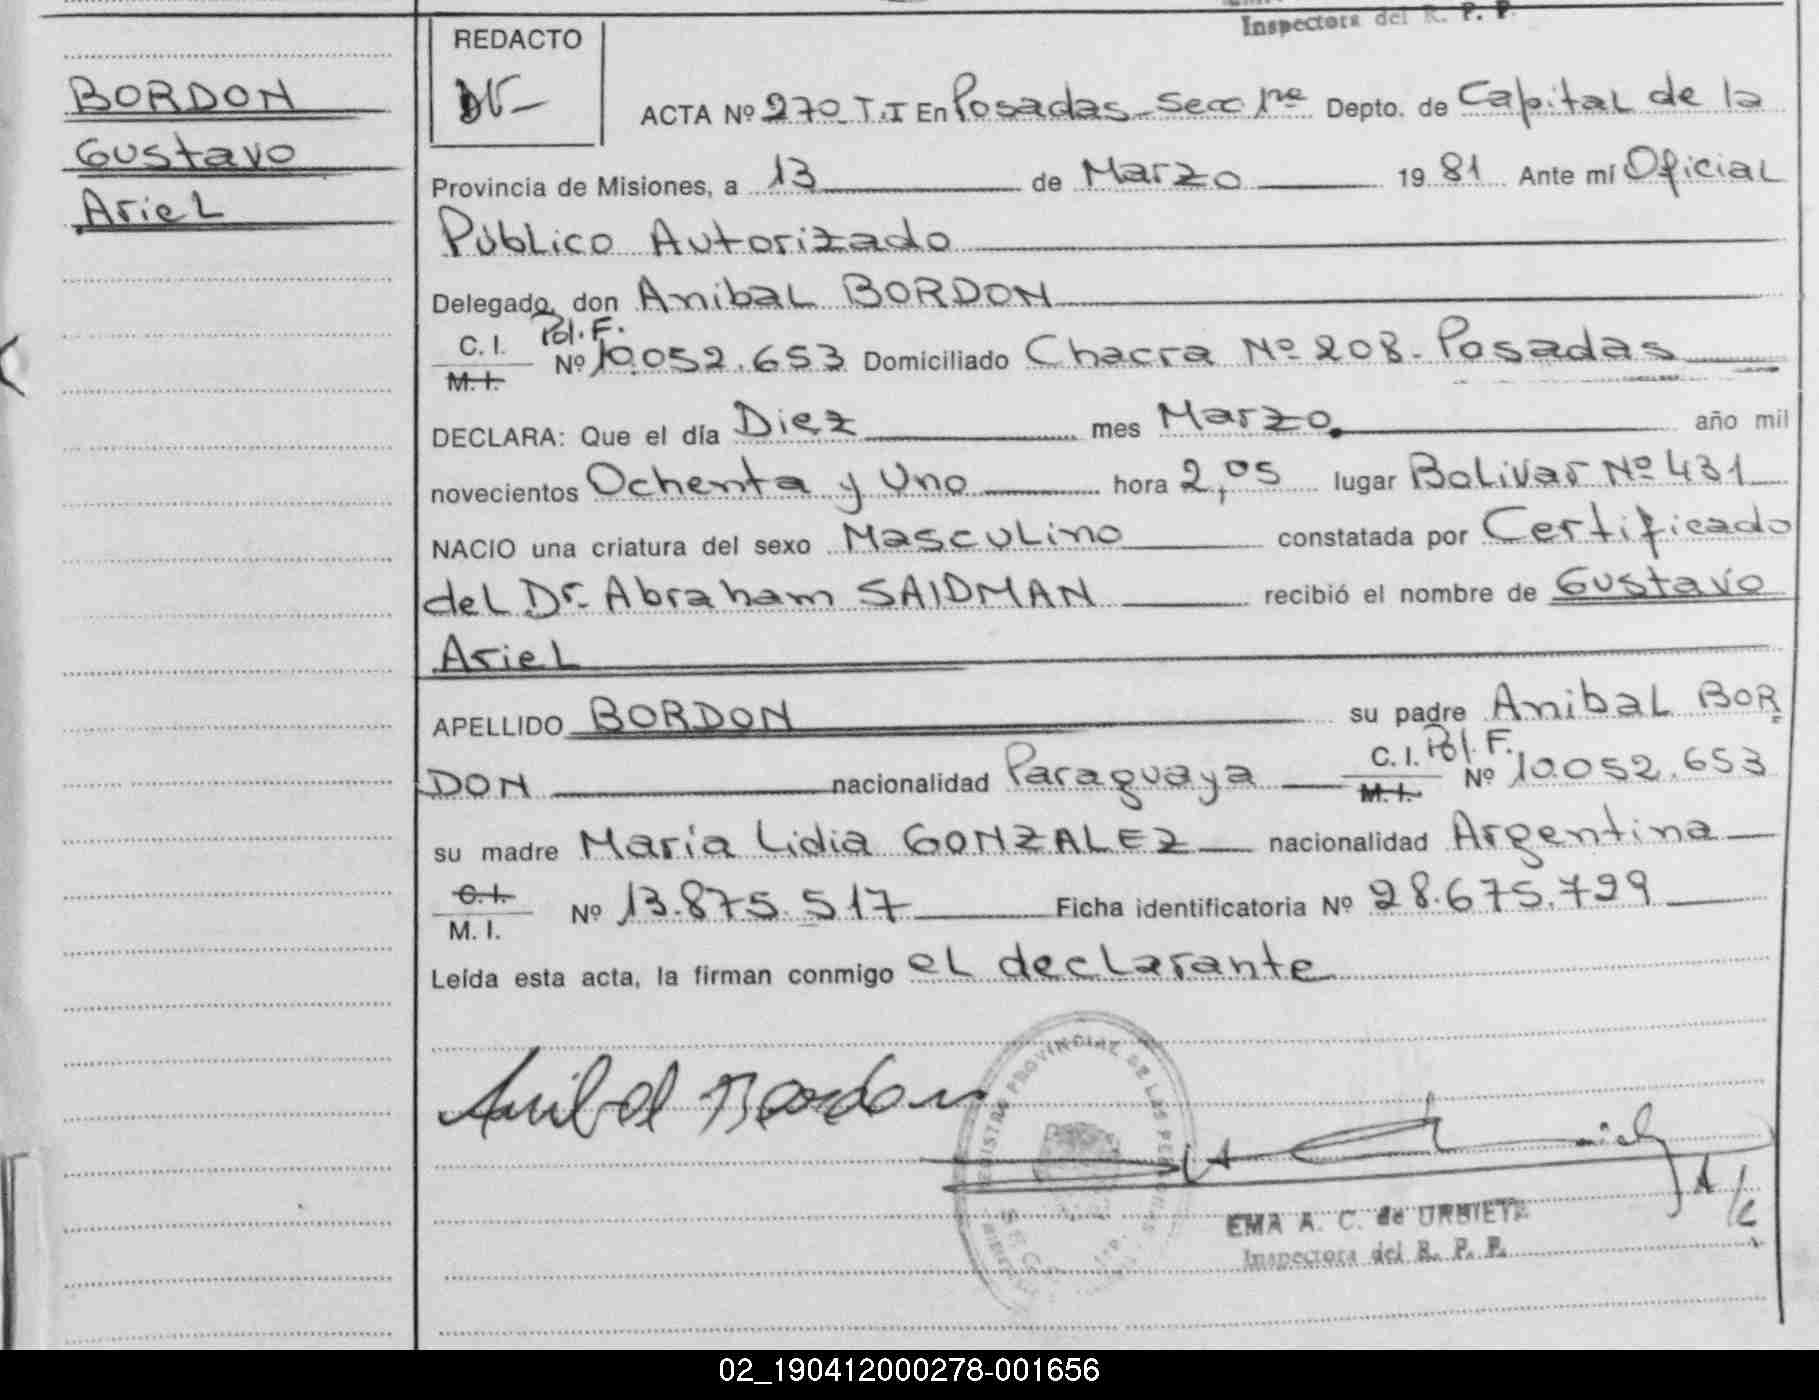 Inspectora del R. P. P.
BORDON
Gustavo
Ariel
REDACTO
ACTA Nº 270 T.I En Posadas-Secc 1ra Depto. de Capital de la
Provincia de Misiones, a 13 de Marzo 1981 Ante mí Oficial
Público Autorizado
Delegado, don Anibal BORDON
C. I. Pol. F.
M. I. Nº 10.052.653 Domiciliado Chacra Nº 208- Posadas
DECLARA: Que el día Diez mes Marzo año mil
novecientos Ochenta y Uno hora 2,05 lugar Bolivar Nº 431
NACIO una criatura del sexo Masculino constatada por Certificado
del Dr. Abraham SAIDMAN recibió el nombre de Gustavo
Ariel
APELLIDO BORDON su padre Anibal BOR
DON nacionalidad Paraguaya C. I. Pol. F. M. I. Nº 10.052.653
su madre María Lidia GONZALEZ nacionalidad Argentina
C. I. M. I. Nº 13.875.517 Ficha identificatoria Nº 28.675.799
Leída esta acta, la firman conmigo el declarante
Anibal Bordon
REGISTRO PROVINCIAL DE LAS PERSONAS
EMA A. C. de URBIETA
Inspectora del R. P. P.
02_190412000278-001656